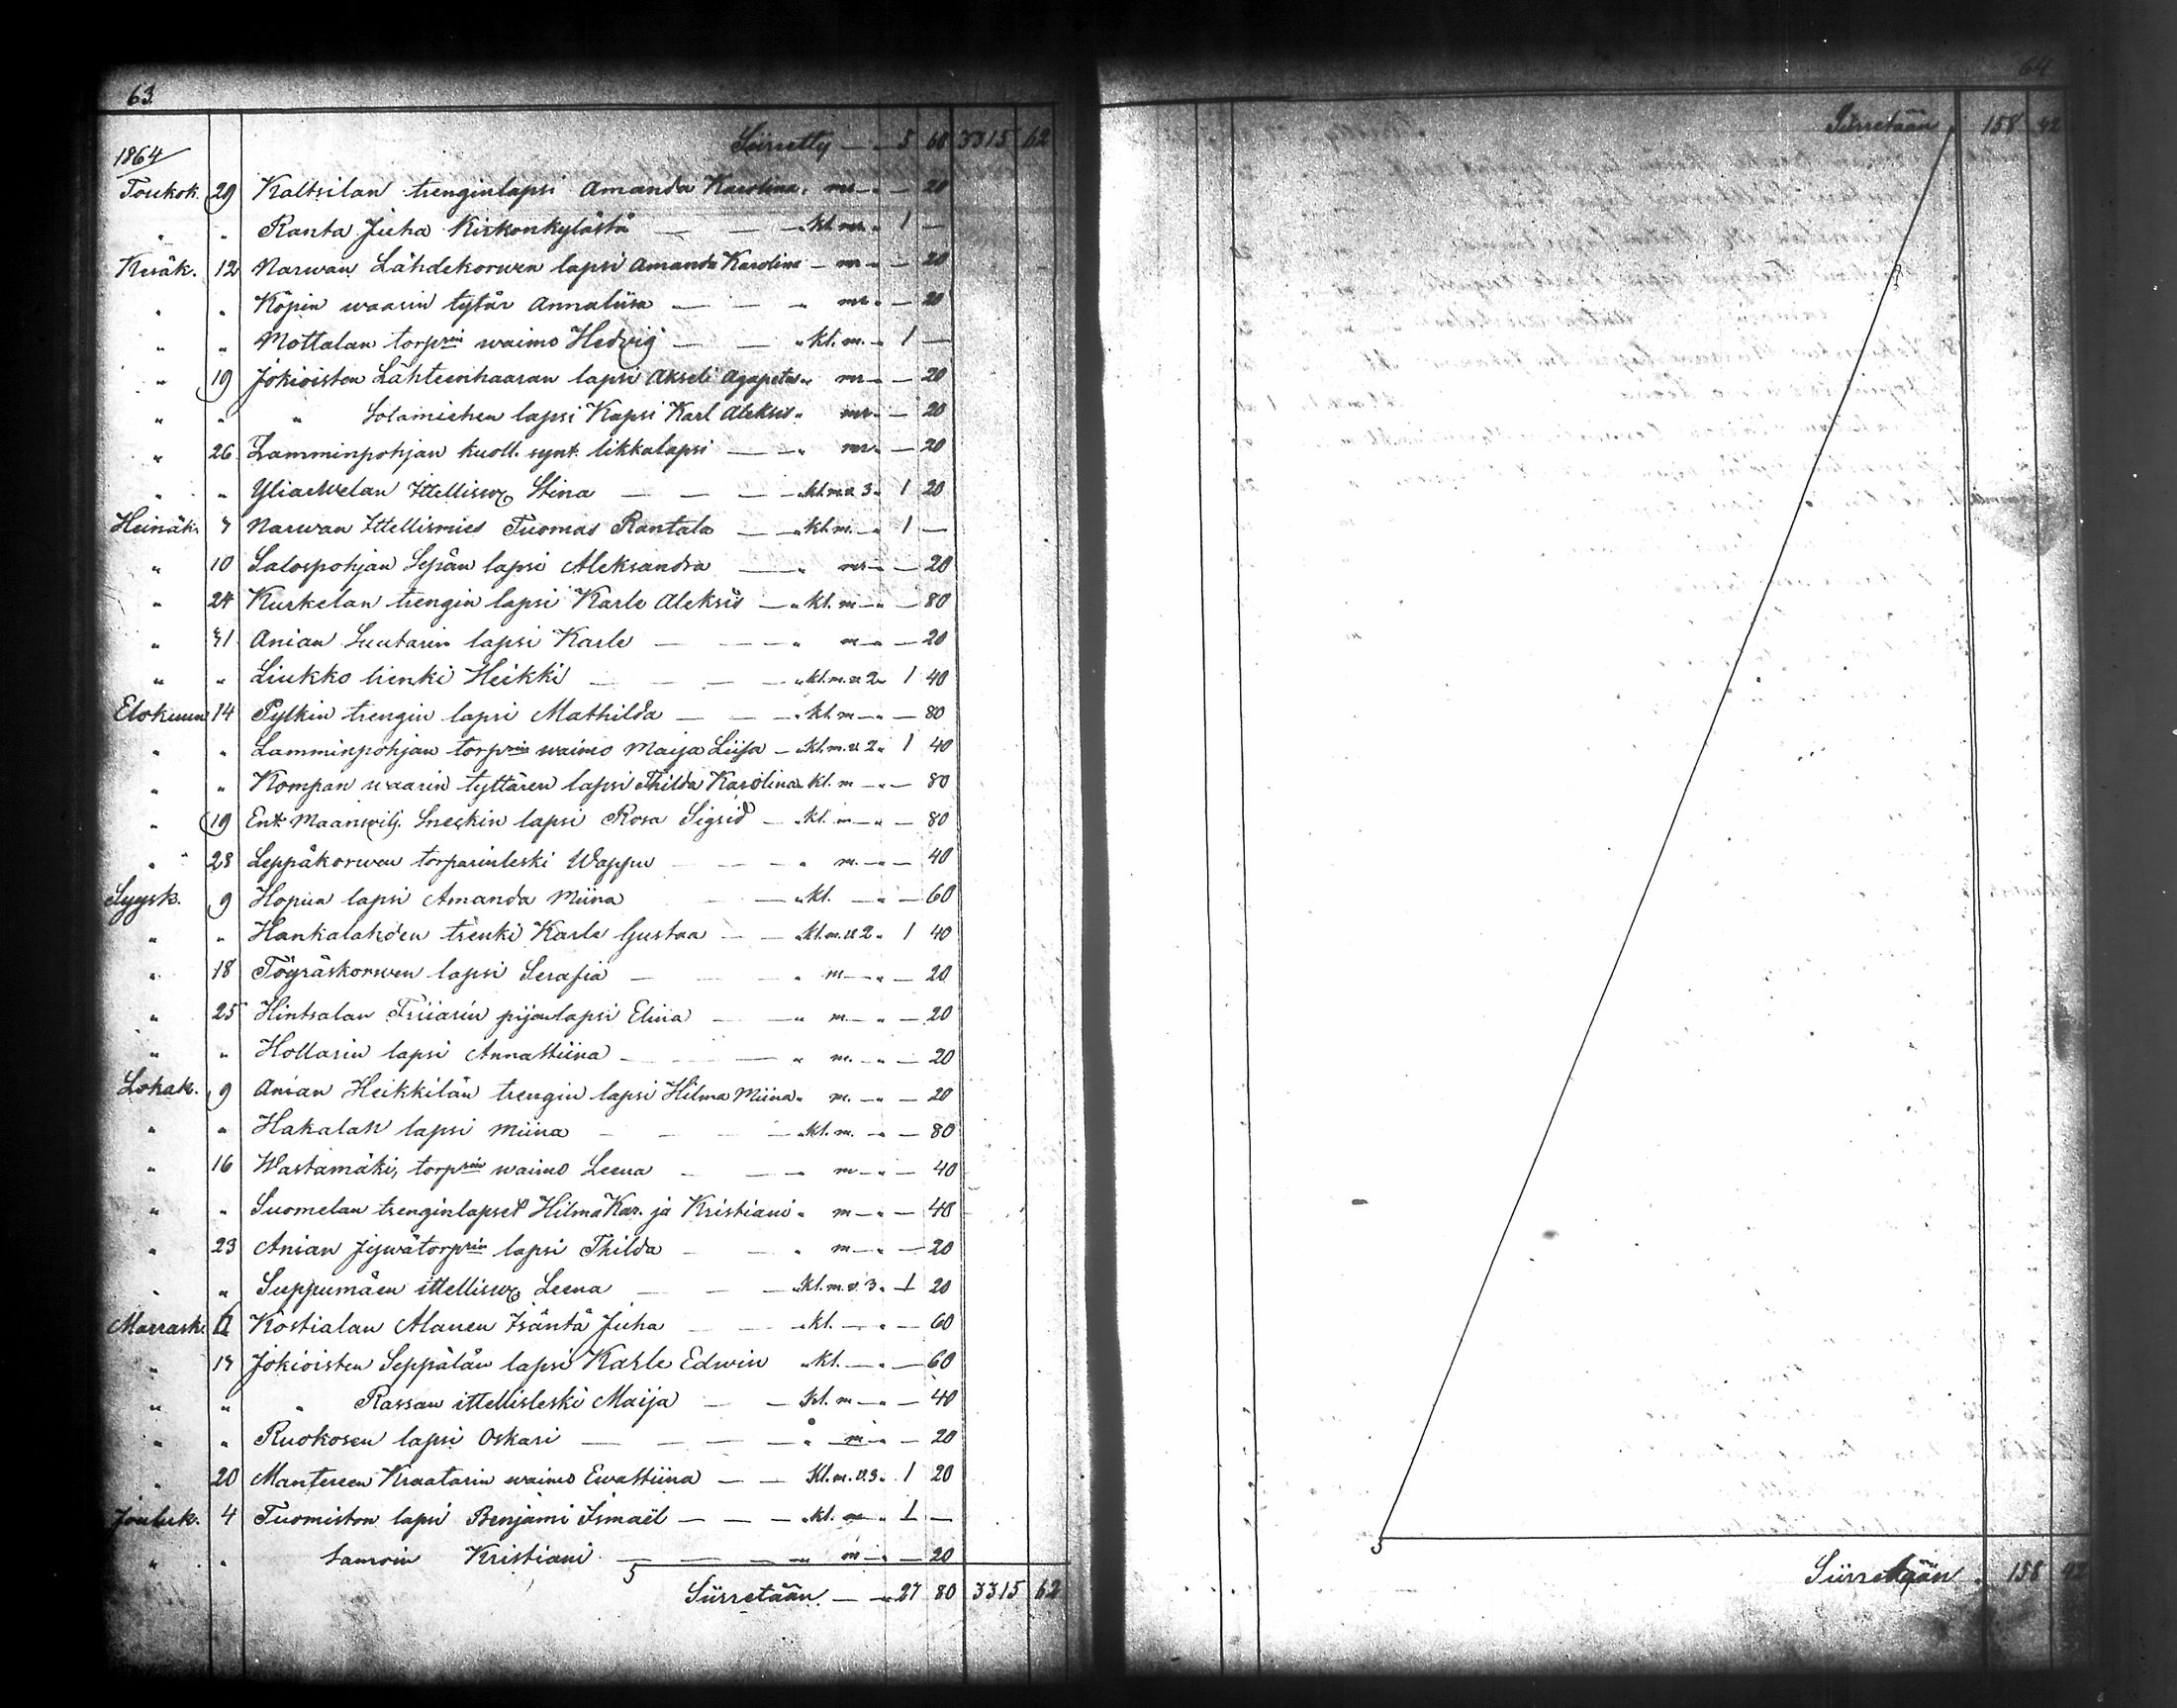 63
Siirretty — „ 5 60 3315 62
1864
Toukok. 29 Kaltsilan trenginlapsi Amanda Karolina „ mr — „ — 20
„ „ Ranta Juha Kirkonkylästä — — „ kl. mr. „ 1 —
Kesäk. 12 Narwan Lähdekorwen lapsi Amanda Karolina — mr — „ — 20
„ „ Köpin waarin tytär Annaliisa — — „ mr. „ — 20
„ „ Mottalan torprin waimo Hedvig — — „ kl. m. „ 1 —
„ 19 Jokioisten Lähteenhaaran lapsi Akseli Agapetus „ mr — „ — 20
„ „ „ Solamiehen lapsi Kapsi Karl Aleksis „ mr. „ — 20
„ 26 Lamminpohjan kuoll. synt. likkalapsi — „ mr. „ — 20
„ „ Yliaewelan Ittellisw. Stina — — — „ kl. m. v. 3 „ 1 20
Heinäk. 7 Narwan Ittellismies Tuomas Rantala — „ kl. m. — „ 1 —
„ 10 Salospohjan Sepän lapsi Aleksandra — „ mr — „ — 20
„ 24 Kurkelan trengin lapsi Karle Aleksis — „ kl. m — „ — 80
„ 31 Anian Suutarin lapsi Karle — — — „ m — „ — 20
„ „ Liukko trenki Heikki — — — „ kl. m. v. 2 „ 1 40
Elokuun 14 Pylkin trengin lapsi Mathilda — — „ kl. m — „ — 80
„ „ Lamminpohjan torprin waimo Maija Liisa — „ kl. m. v. 2 „ 1 40
„ „ Kompan waarin tyttären lapsi Thilda Karolina „ kl. m — „ — 80
„ 19 Ent. Maanwilj. Sneckin lapsi Rosa Sigrid — „ kl. m — „ — 80
„ 28 Leppäkorwen torparinleski Wappu — — „ m. — „ — 40
Syysk. 9 Hopun lapsi Amanda Miina — „ kl. — „ — 60
„ „ Hankalahden trenki Karle Gustaa — — „ kl. m. v. 2 „ 1 40
„ 18 Töyräskorwen lapsi Serafia — — „ m — „ — 20
„ 25 Hintsalan Friiarin pijanlapsi Elina — — „ m — „ — 20
„ „ Hollarin lapsi Annastiina — — „ m. — „ — 20
Lokak. 9 Anian Heikkilän trengin lapsi Hilma Miina „ m. — „ — 20
„ „ Hakalan lapsi Miina — — — „ kl. m. — „ — 80
„ 16 Wastamäki, torprin waimo Leena — — m — „ — 40
„ „ Suomelan trenginlapset Hilma Kar. ja Kristiani „ m — „ — 40
„ 23 Anian Jywätorprin lapsi Thilda — — „ m — „ — 20
„ „ Suppumäen ittellisw. Leena — — „ kl. m. v. 3 „ 1 20
Marrask. 6 Kostialan Alanen Isäntä Juha — — „ kl. — „ — 60
„ 17 Jokioisten Seppälän lapsi Karle Edwin „ kl. — „ — 60
„ „ „ Rassan ittellisleski Maija — — kl. m — „ — 40
„ „ Ruokosen lapsi Oskari — — — — „ m — „ — 20
„ 20 Mantereen Kraatarin waimo Ewastiina — — kl. m. v. 3 „ 1 20
Jouluk. 4 Tuomiston lapsi Benjami Ismaël — — — „ kl. m — „ 1 —
„ „ Samoin Kristiani — — — „ m — „ — 20
Siirretään — „ 27 80 3315 62
64
Siirretään „ 158 42
Siirretään „ 158 42